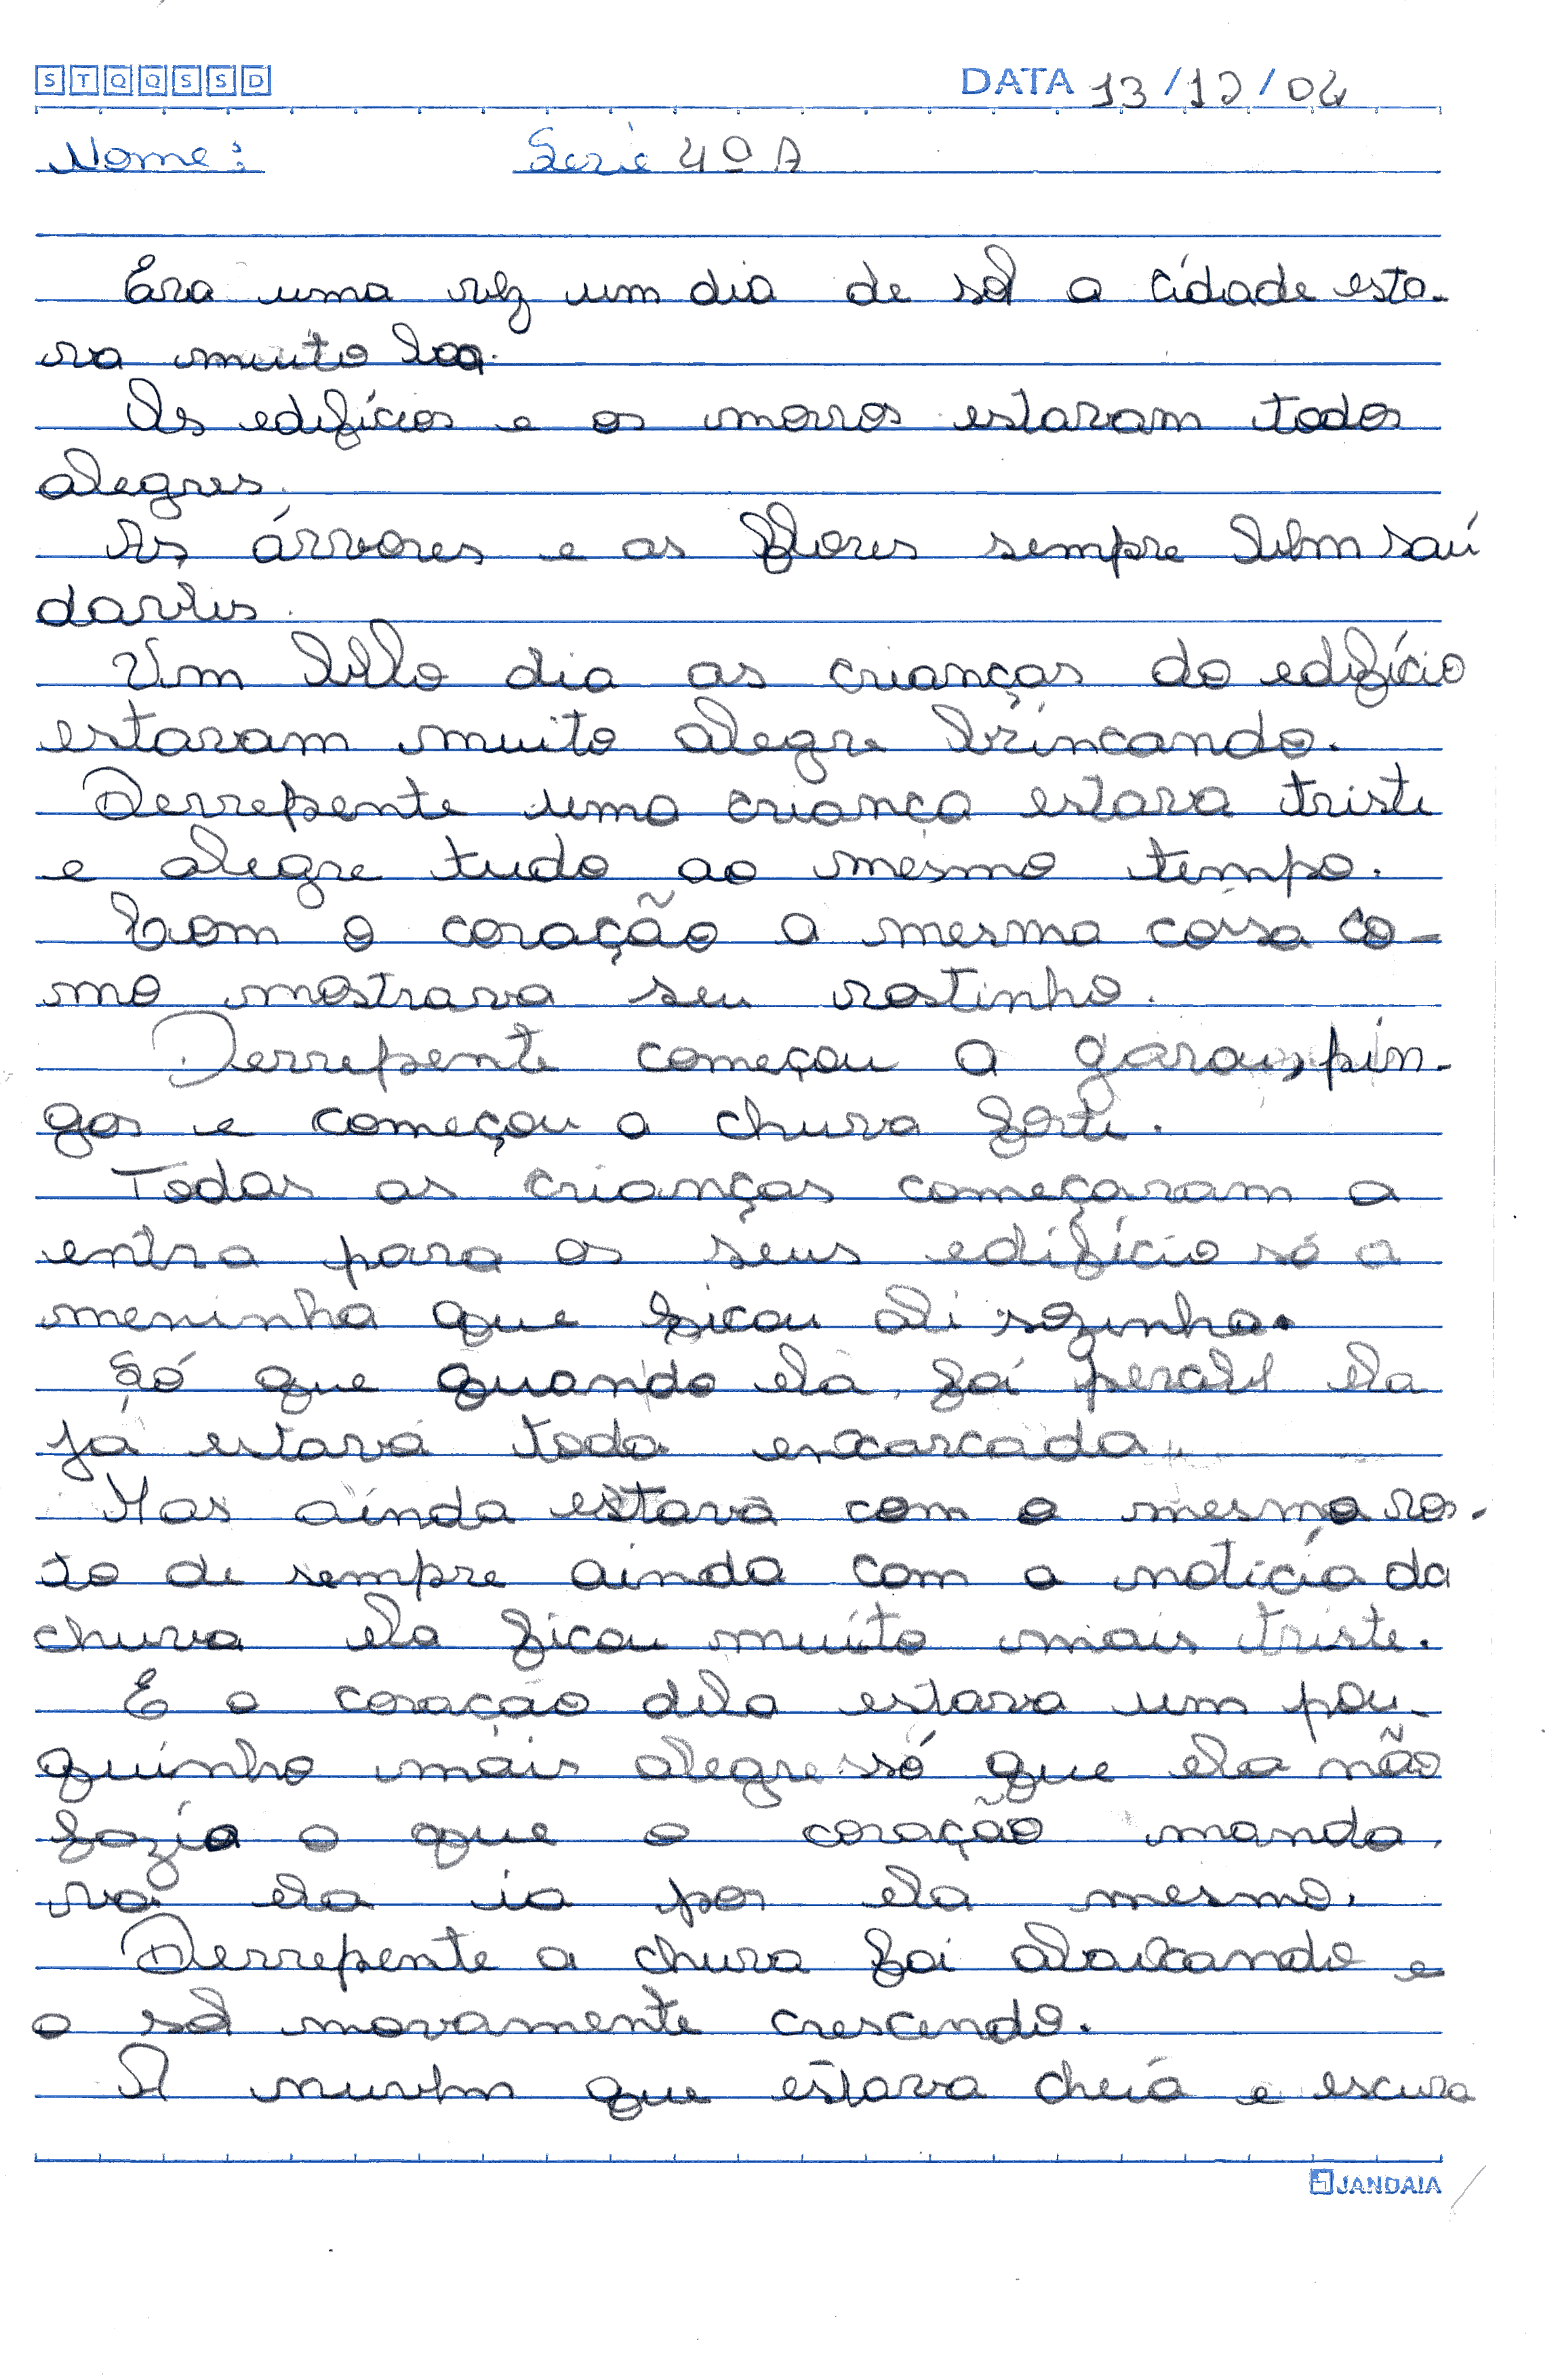 S T Q Q S S D DATA 13/12/04
Nome: Serie 4º A
Era uma vez um dia de sol a cidade esta-
va muito boa.
Os edifícios e os morros estavam todos
alegres.
As árvores e as flores sempre bem saú
daveis.
Um bello dia as crianças do edifício
estavam muito alegre brincando.
Derrepente uma criança estava triste
e alegre tudo ao mesmo tempo.
Com o coração a mesma coisa co-
mo mostrava seu rostinho.
Derrepente começou a garou, pin-
gos e começou a chuva forte.
Todas as crianças começaram a
entra para os seus edifício só a
meninha que ficou ali sozinha.
Só que quando ela foi perceb ela
já estava toda enxarcada.
Mas ainda estava com o mesmo ros-
to de sempre ainda com a notícia da
chuva ela ficou muito mais triste.
E o coração dela estava um pou-
quinho mais alegre só que ela não
fazia o que o coração manda
va ela ia por ela mesmo.
Derrepente a chuva foi abaixando e
o sol novamente crescendo.
A nuvem que estava cheia e escura
JANDAIA